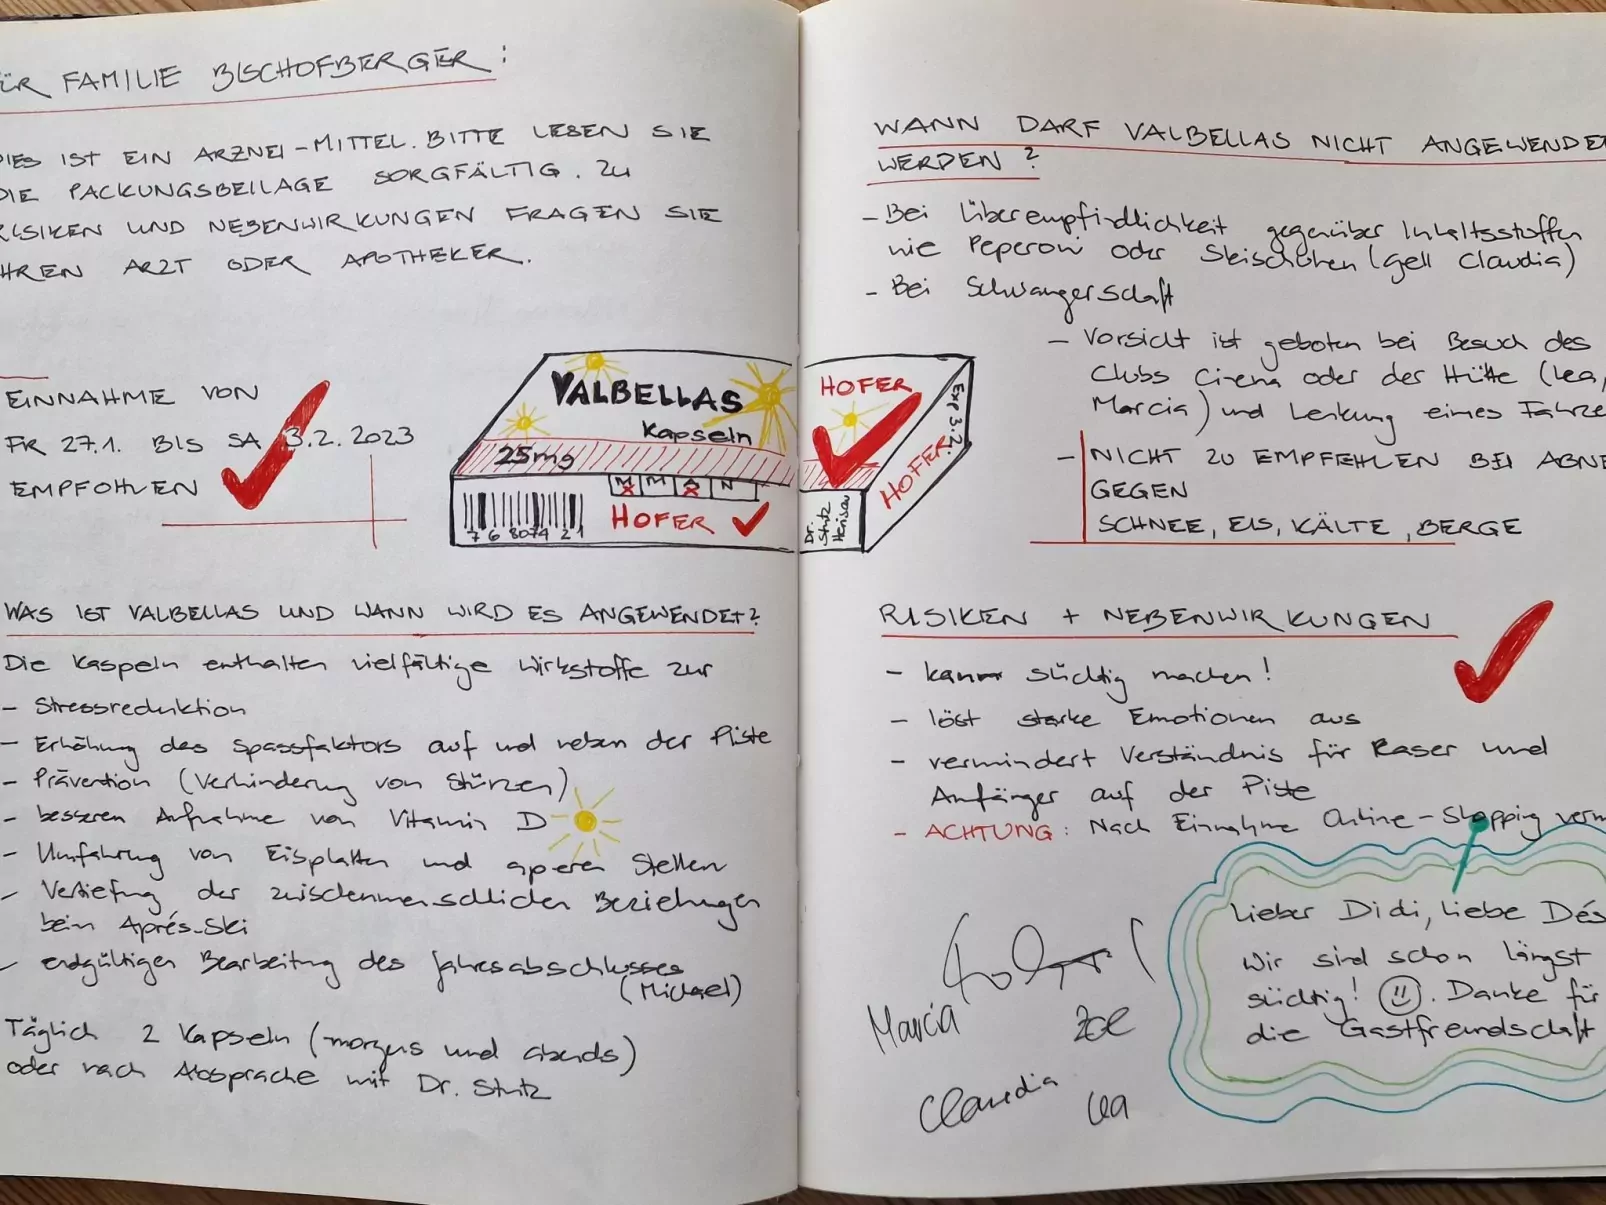 ÜR FAMILIE BISCHOFBERGER:
DIES IST EIN ARZNEI-MITTEL. BITTE LESEN SIE
DIE PACKUNGSBEILAGE SORGFÄLTIG. ZU
RISIKEN UND NEBENWIRKUNGEN FRAGEN SIE
IHREN ARZT ODER APOTHEKER.
EINNAHME VON
FR 27.1. BIS SA 3.2.2023
EMPFOHLEN
VALBELLAS
Kapseln
25mg
M M A N
HOFER
7 6 8074 2 1
HOFER
Dr. Stutz Herisau
HOFER
Exp 3.2.
WAS IST VALBELLAS UND WANN WIRD ES ANGEWENDET?
Die Kaspeln enthalten vielfältige Wirkstoffe zur
- Stressreduktion
- Erhöhung des Spassfaktors auf und neben der Piste
- Prävention (Verhinderung von Stürzen)
- besseren Aufnahme von Vitamin D
- Umfahrung von Eisplatten und aperen Stellen
- Vertiefung der zwischenmenschlichen Beziehungen
beim Aprés-Ski
- endgültigen Bearbeitung des Jahresabschlusses
(Michael)
Täglich 2 Kapseln (morgens und abends)
oder nach Absprache mit Dr. Stutz
WANN DARF VALBELLAS NICHT ANGEWENDE
WERDEN?
- Bei Überempfindlichkeit gegenüber Inhaltsstoffen
wie Peperoni oder Skischuhen (gell Claudia)
- Bei Schwangerschaft
- Vorsicht ist geboten bei Besuch des
Clubs Cinema oder der Hütte (Lea,
Marcia) und Lenkung eines Fahrze
- NICHT ZU EMPFEHLEN BEI ABNE
GEGEN
SCHNEE, EIS, KÄLTE, BERGE
RISIKEN + NEBENWIRKUNGEN
- kann süchtig machen!
- löst starke Emotionen aus
- vermindert Verständnis für Raser und
Anfänger auf der Piste
- ACHTUNG: Nach Einnahme Online-Shopping verm
Marcia Zoe
Claudia Lea
Lieber Didi, liebe Dés
Wir sind schon längst
süchtig! Danke für
die Gastfreundschaft